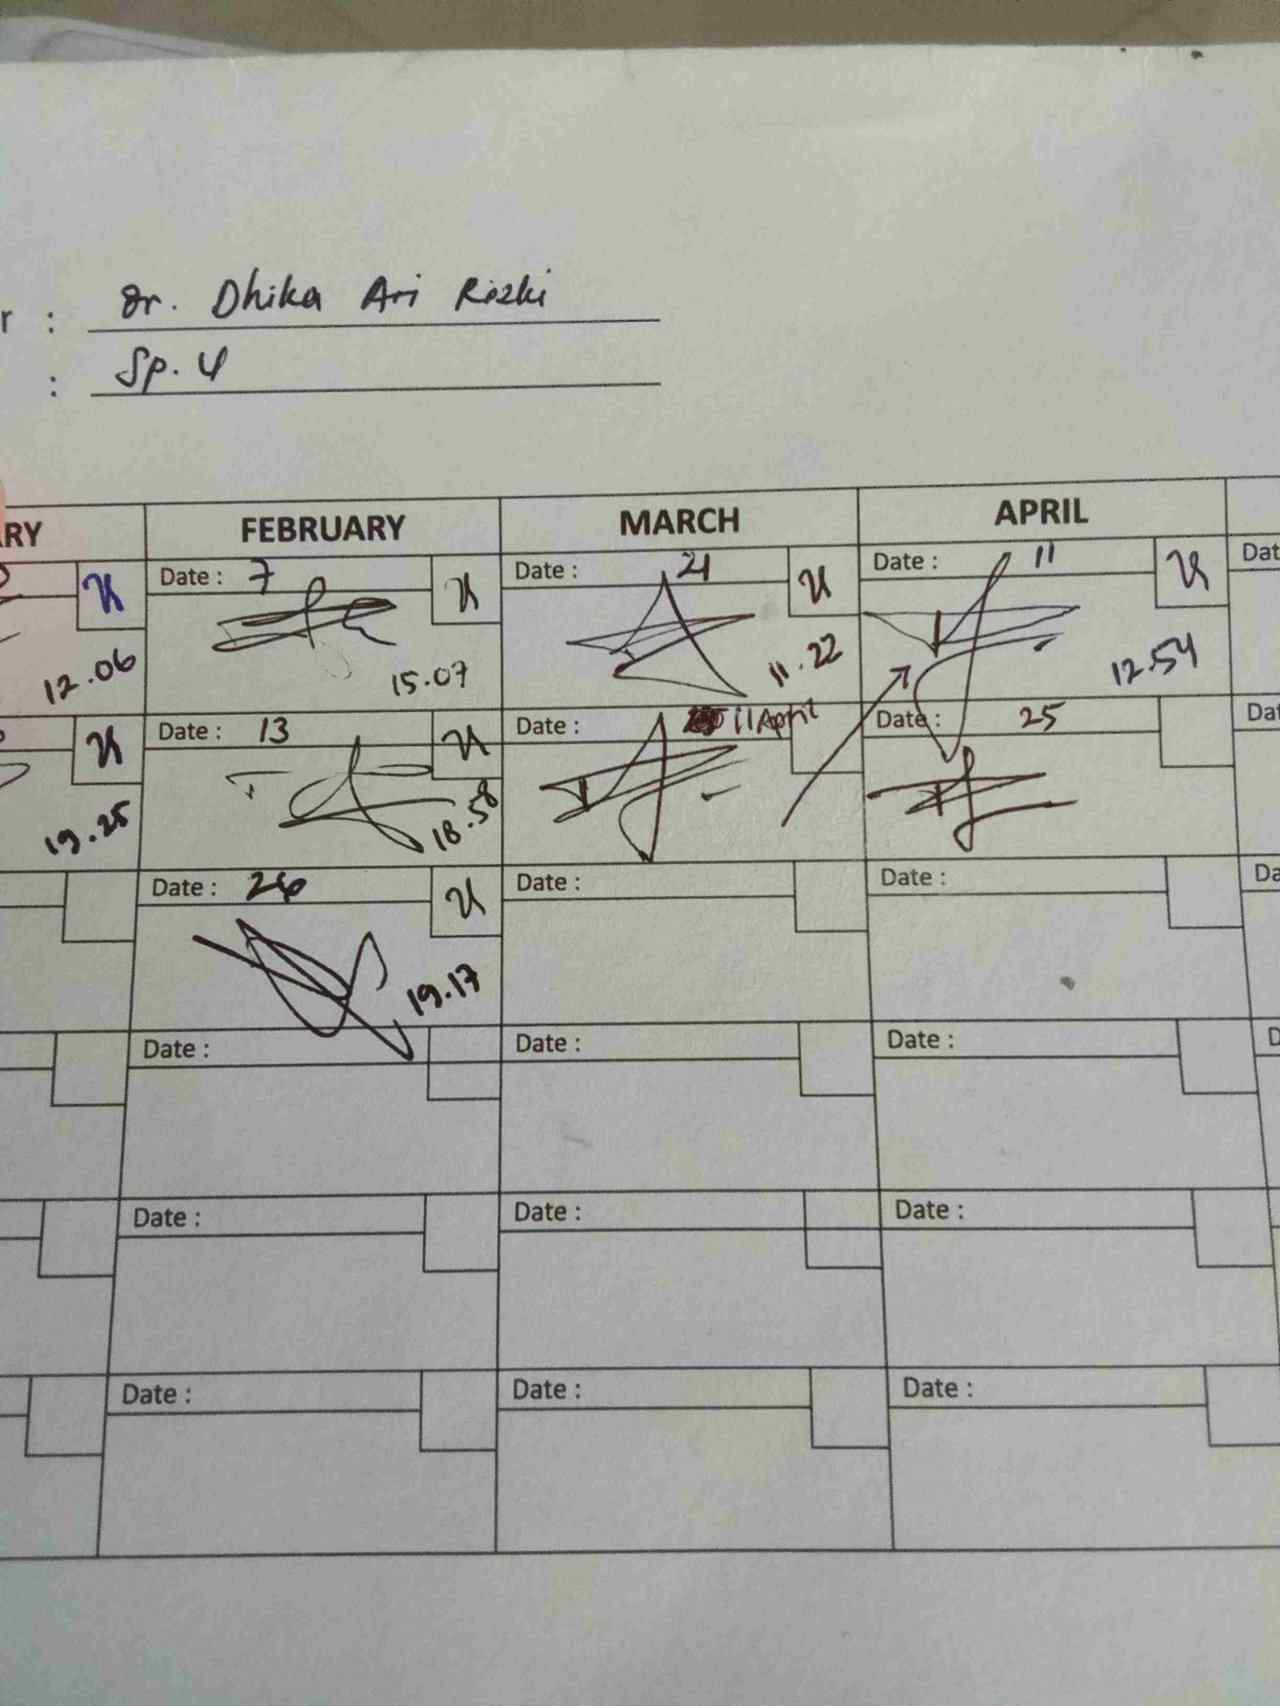 r : Dr. Dhika Ari Rizki
: Sp. U
RY FEBRUARY MARCH APRIL
Date : 7 Date : 21 Date : 11 Dat
12.06 15.07 11.22 12.54
Date : 13 Date : 11 April Date : 25 Dat
19.25 18.58
Date : 26 Date : Date : Da
19.17
Date : Date : Date : D
Date : Date : Date :
Date : Date : Date :